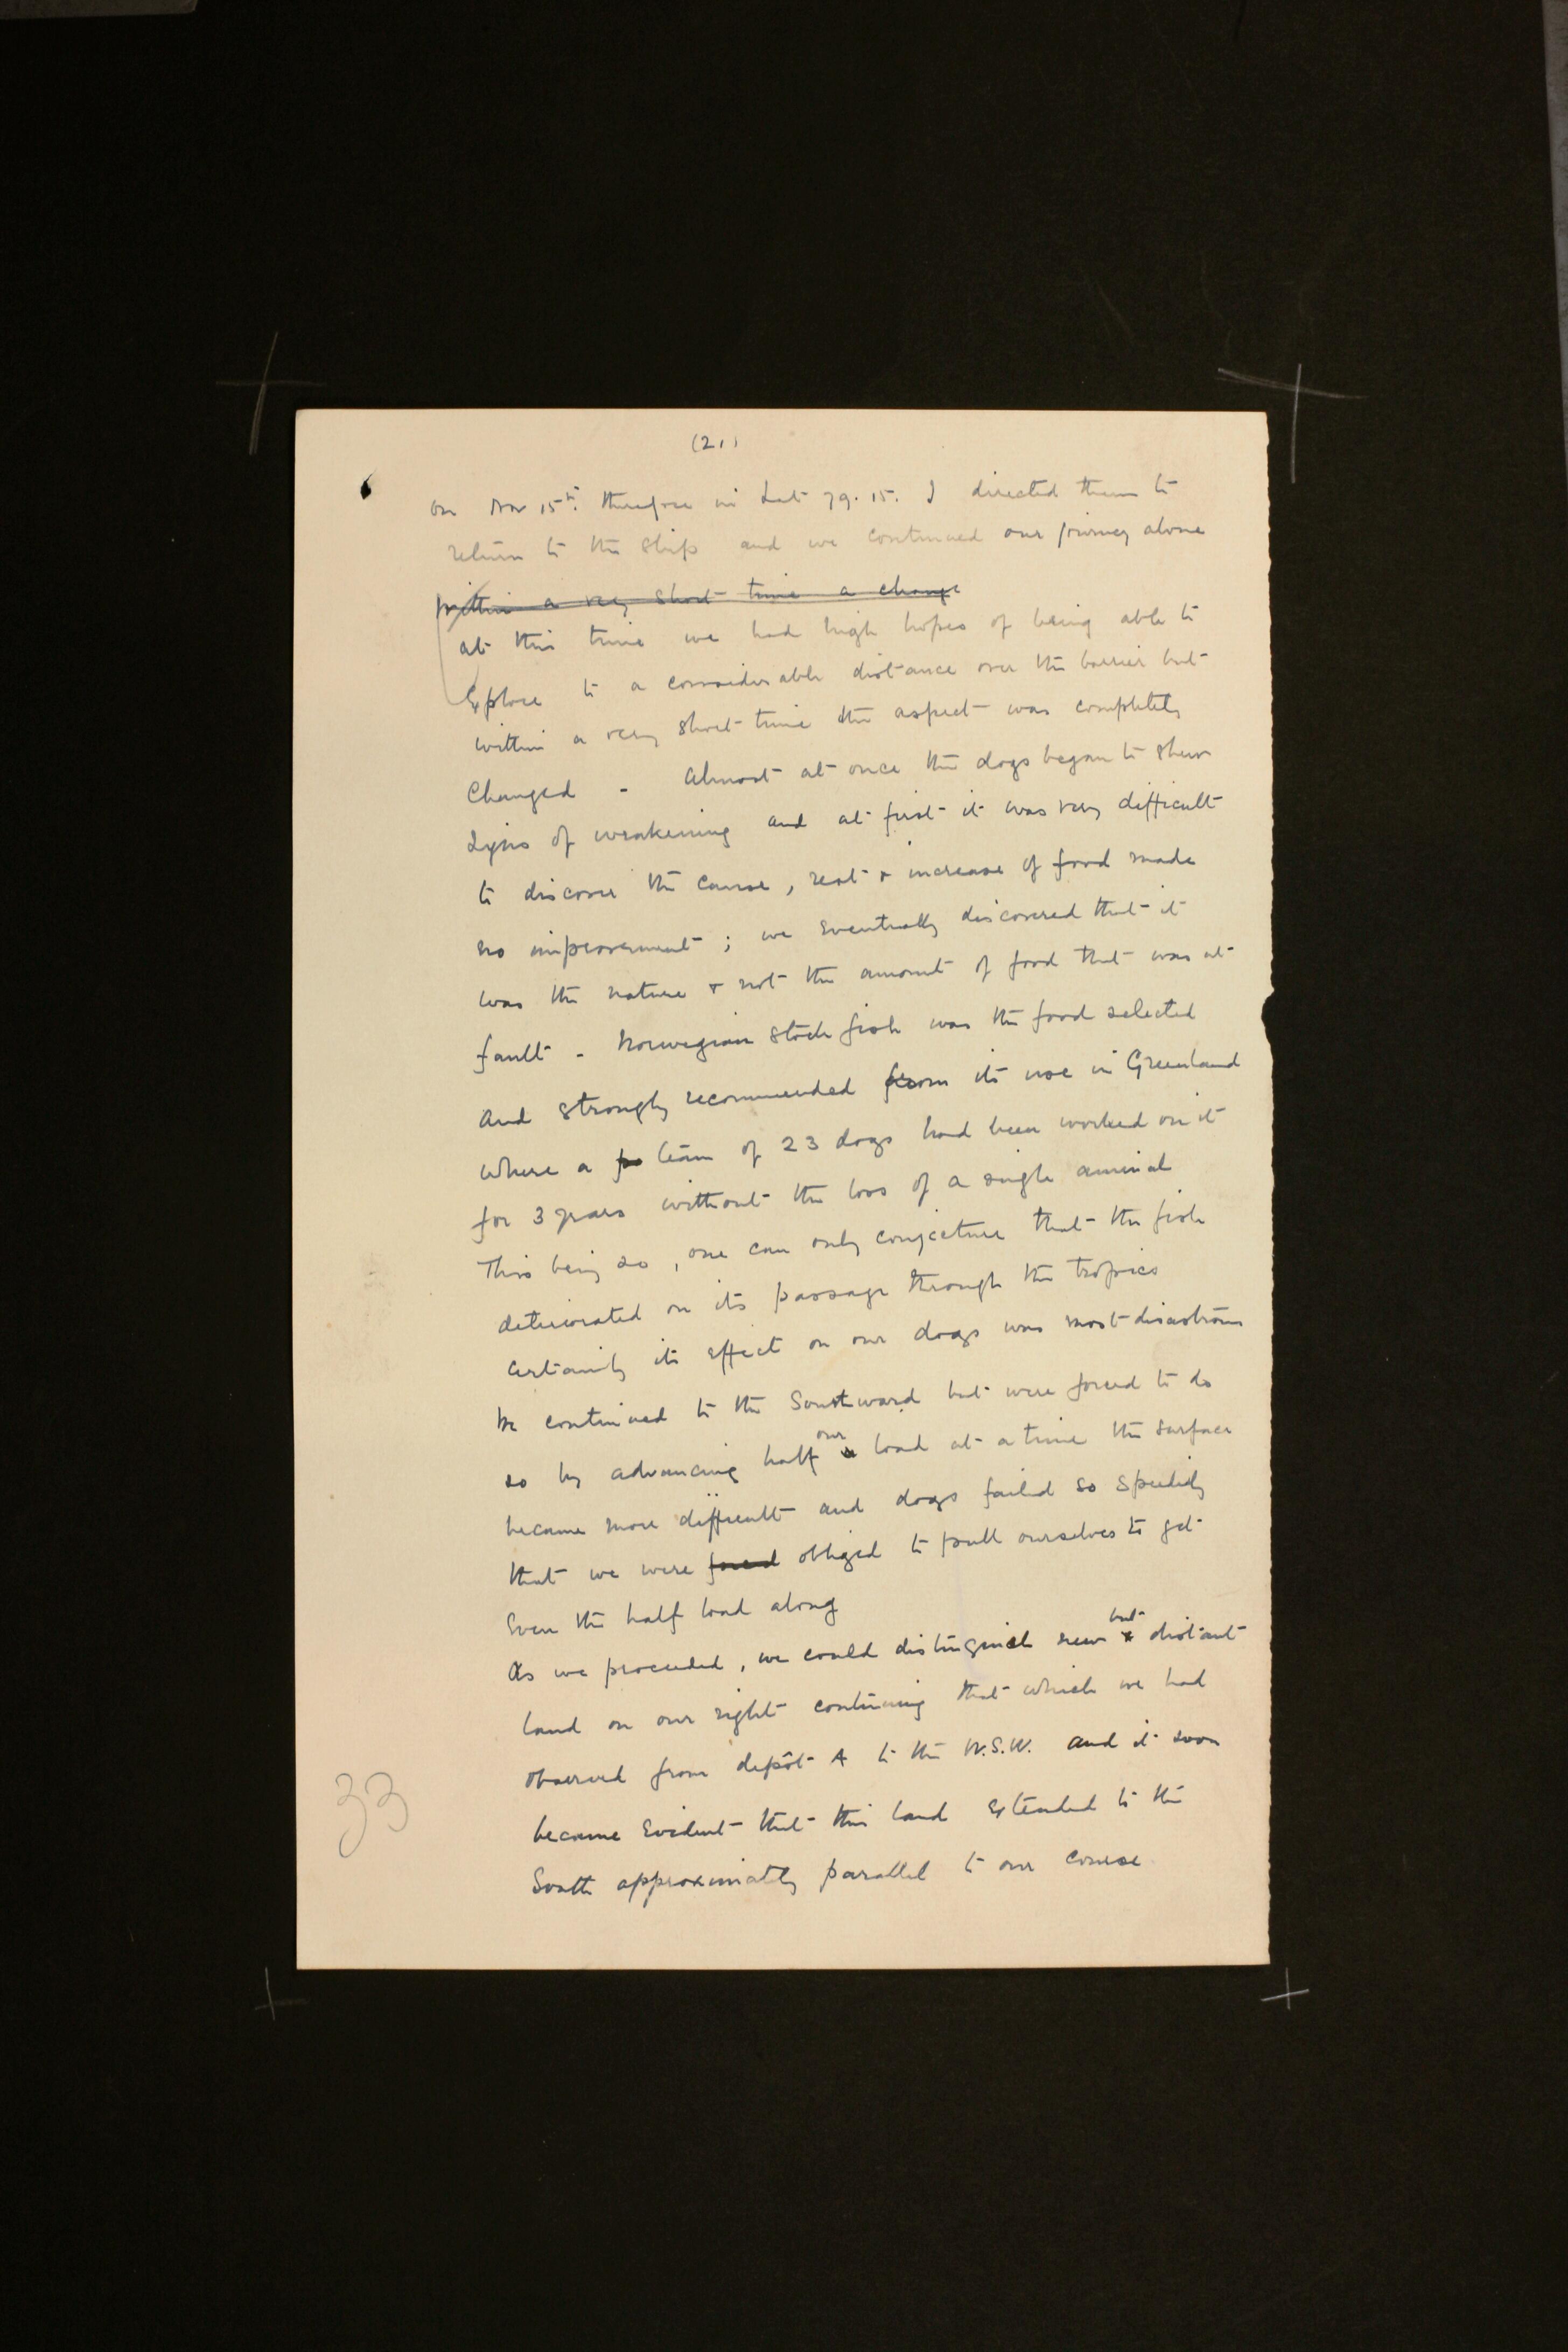 (21)
on Nov 15th. therefore in Lat 79.15. I directed them to
return to the ship and we continued our journey alone
Within a very short time a change
at this time we had high hopes of being able to
explore to a considerable distance over the barrier but
within a very short time the aspect was completely
changed - Almost at once the dogs began to shew
signs of weakening and at first it was very difficult
to discover the cause, rest & increase of food made
no improvement; we eventually discovered that it
was the nature & not the amount of food that was at
fault - Norwegian stock fish was the food selected
and strongly recommended from its use in Greenland
where a team of 23 dogs had been worked on it
for 3 years without the loss of a single animal
This being so, one can only conjecture that the fish
deteriorated on its passage through the tropics
Certainly its effect on our dogs was most disastrous
We continued to the Southward but were forced to do
so by advancing half our load at a time the surface
became more difficult and dogs failed so speedily
that we were forced obliged to pull ourselves to get
even the half load along
As we proceeded, we could distinguish new but distant
land on our right continuing that which we had
observed from depôt A to the W.S.W. and it soon
became evident that this land extended to the
South approximately parallel to our course
33